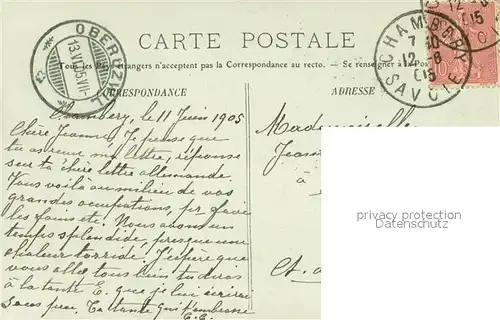 CARTE POSTALE
Tous les Pays étrangers n'acceptent pas la Correspondance au recto. — Se renseigner à la Poste
CORRESPONDANCE
ADRESSE
OBERUZWIL
13.VI.05.VII-
CHAMBERY
7 30
12 -8
05
SAVOIE
12
05
10
Chambery, le 11 Juin 1905
Chère Jeanne, Je pense que
tu as reçue ma lettre, réponse
sur ta chère lettre allemande.
Vous voilà au milieu de vos
grandes occupations, pr. faire
les foins etc. Nous avons un
temps splendide, presque une
chaleur torride. J'espère que
vous allez tous bien tu diras
à la tante E. que je lui écrirai
sous peu. Ta tante qui t'embrasse
E.E.
Mademoiselle
Jeann
à
Ct.
privacy protection
Datenschutz